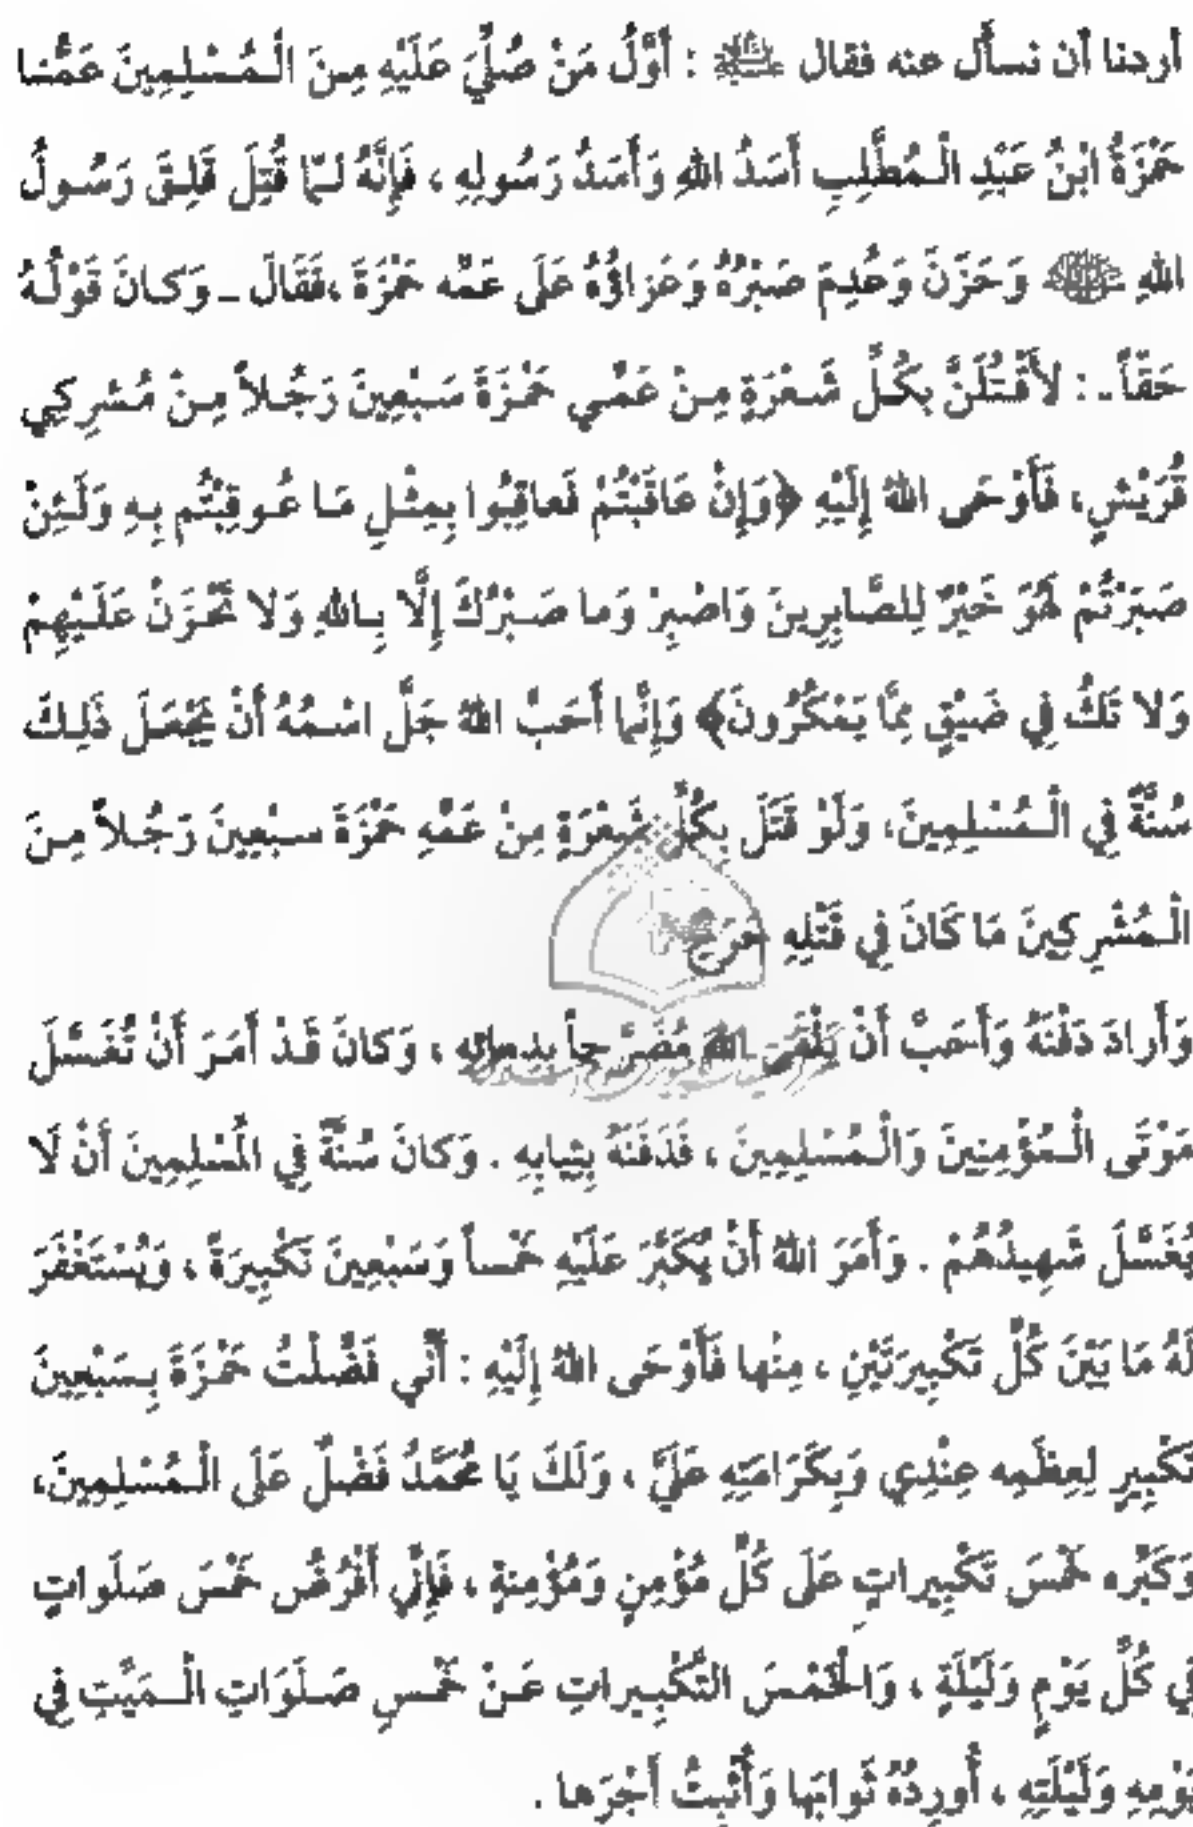 أردنا أن نسأل عنه فقال ﷺ : أَوَّلُ مَنْ صُلِّيَ عَلَيْهِ مِنَ الْمُسْلِمِينَ عَمُّنا
حَمْزَةُ ابْنُ عَبْدِ الْمُطَّلِبِ أَسَدُ اللهِ وَأَسَدُ رَسُولِهِ ، فَإِنَّهُ لَمّا قُتِلَ قَلِقَ رَسُولُ
اللهِ ﷺ وَحَزِنَ وَعُدِمَ صَبْرُهُ وَعَزاؤُهُ عَلَى عَمِّه حَمْزَةَ ،فَقَالَ ـ وَكانَ قَوْلُهُ
حَقّاً ـ : لأَقْتُلَنَّ بِكُلِّ شَعْرَةٍ مِنْ عَمِّي حَمْزَةَ سَبْعِينَ رَجُلاً مِنْ مُشرِكِي
قُرَيْشٍ، فَأَوْحَى اللهُ إِلَيْهِ ﴿وَإِنْ عَاقَبْتُمْ فَعاقِبُوا بِمِثْلِ مَا عُوقِبْتُم بِهِ وَلَئِنْ
صَبَرْتُمْ لَهُوَ خَيْرٌ لِلصَّابِرِينَ وَاصْبِرْ وَما صَبْرُكَ إِلَّا بِاللهِ وَلا تَحْزَنْ عَلَيْهِمْ
وَلا تَكُ فِي ضَيْقٍ مِمَّا يَمْكُرُونَ﴾ وَإِنَّما أَحَبَّ اللهُ جَلَّ اسْمُهُ أَنْ يَجْعَلَ ذَلِكَ
سُنَّةً فِي الْمُسْلِمِينَ، وَلَوْ قَتَلَ بِكُلِّ شَعْرَةٍ مِنْ عَمِّهِ حَمْزَةَ سبْعِينَ رَجُلاً مِنَ
الْمُشْرِكِينَ مَا كَانَ فِي قَتْلِهِ حَرَجٌ
وَأَرادَ دَفْنَهُ وَأَحَبَّ أَنْ يَلْقَى اللهَ مُضَرَّجاً بِدِمائِهِ ، وَكانَ قَدْ أَمَرَ أَنْ تُغَسَّلَ
مَوْتَى الْمُؤْمِنِينَ وَالْمُسْلِمِينَ ، فَدَفَنَهُ بِثِيابِهِ . وَكانَ سُنَّةً فِي الْمُسْلِمِينَ أَنْ لَا
يُغَسَّلَ شَهِيدُهُمْ . وَأَمَرَ اللهُ أَنْ يُكَبِّرَ عَلَيْهِ خَمْساً وَسَبْعِينَ تَكْبِيرَةً ، وَيُسْتَغْفَرَ
لَهُ مَا بَيْنَ كُلِّ تَكْبِيرَتَيْنِ ، مِنْها فَأَوْحَى اللهُ إِلَيْهِ : أَنِّي فَضَّلْتُ حَمْزَةَ بِسَبْعِينَ
تَكْبِيرٍ لِعِظَمِه عِنْدِي وَبِكَرَامَتِهِ عَلَيَّ ، وَلَكَ يَا مُحَمَّدُ فَضْلٌ عَلَى الْمُسْلِمِينَ،
وَكَبِّرْه خَمْسَ تَكْبِيراتٍ عَلَى كُلِّ مُؤْمِنٍ وَمُؤْمِنةٍ ، فَإِنِّي أَفْرُضُ خَمْسَ صَلَواتٍ
فِي كُلِّ يَوْمٍ وَلَيْلَةٍ ، وَالْخَمْسَ التَّكْبِيراتِ عَنْ خَمْسِ صَلَوَاتِ الْمَيِّتِ فِي
يَوْمِهِ وَلَيْلَتِهِ ، أُورِدُهُ ثَوابَها وَأُثْبِتُ أَجْرَها .